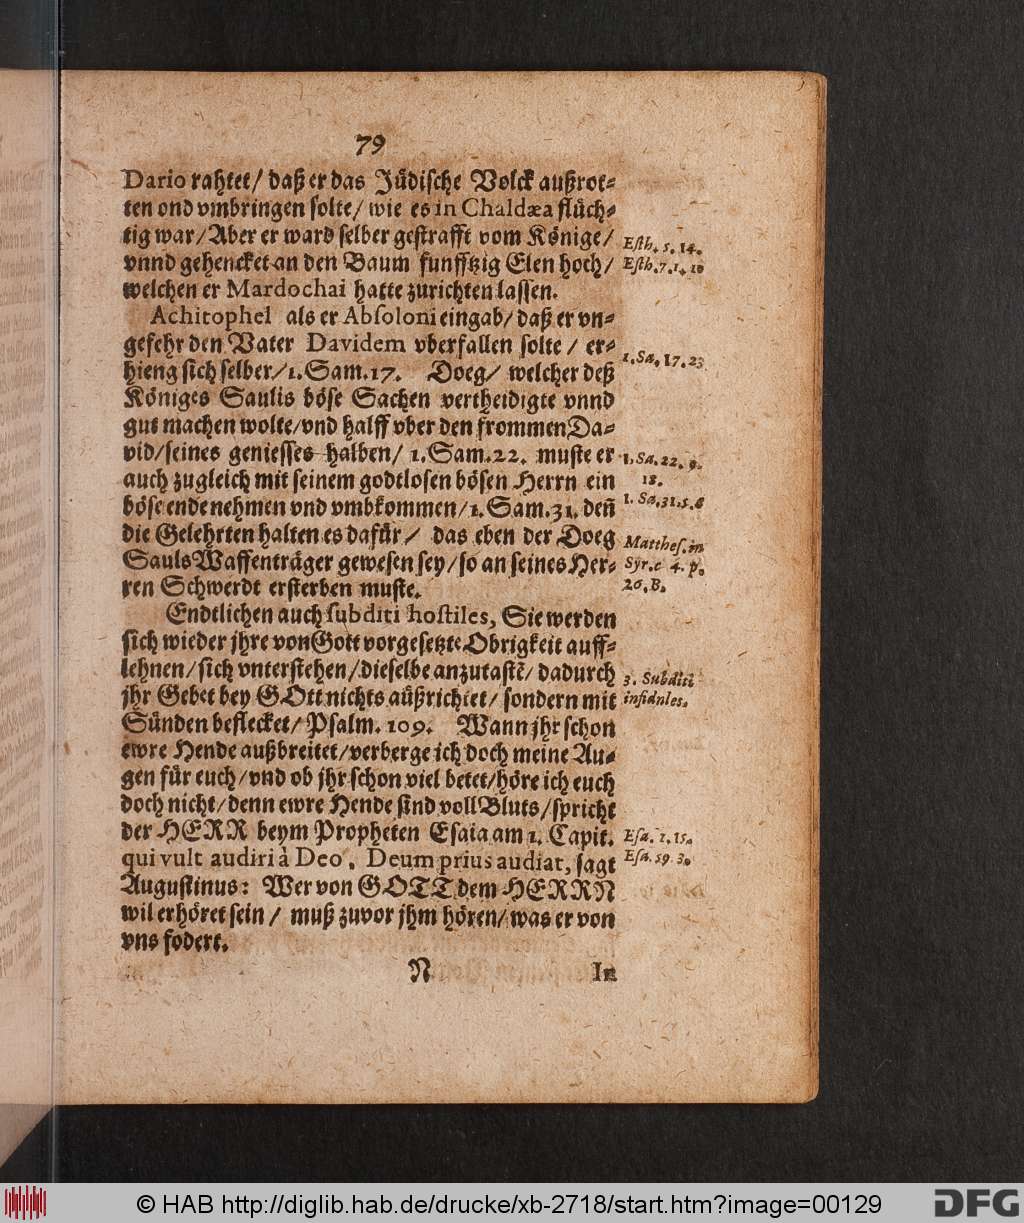 79
Dario rahtet/ daß er das Jüdische Volck außrot⸗
ten ond vmbringen solte/ wie es in Chaldæa flüch⸗
tig war/ Aber er ward selber gestrafft vom Könige/
Esth. 5. 14.
vnnd gehencket an den Baum funfftzig Elen hoch/
Esth. 7. 1. 10
welchen er Mardochai hatte zurichten lassen.
Achitophel als er Absoloni eingab/ daß er vn⸗
gefehr den Vater Davidem vberfallen solte / er⸗
1. Sa. 17. 23
hieng sich selber/ 1. Sam. 17. Doeg/ welcher deß
Königes Saulis böse Sachen vertheidigte vnnd
gut machen wolte/ vnd halff vber den frommen Da⸗
vid/ seines geniesses halben/ 1. Sam. 22. muste er
1. Sa. 22. 9.
18.
auch zugleich mit seinem godtlosen bösen Herrn ein
böse ende nehmen vnd vmbkommen/ 1. Sam. 31. deñ
1. Sa. 31. 5. 6
die Gelehrten halten es dafür / das eben der Doeg
Matthes. in
Sauls Waffenträger gewesen sey/ so an seines Her⸗
Syr. c 4. p.
ren Schwerdt ersterben muste.
26. B.
Endtlichen auch subditi hostiles, Sie werden
sich wieder jhre von Gott vorgesetzte Obrigkeit auff⸗
lehnen/ sich vnterstehen/ dieselbe anzutastẽ/ dadurch
3. Subditi
jhr Gebet bey GOtt nichts außrichtet/ sondern mit
insidnles.
Sünden beflecket/ Psalm. 109. Wann jhr schon
ewre Hende außbreitet/ verberge ich doch meine Au⸗
gen für euch/ vnd ob jhr schon viel betet/ höre ich euch
doch nicht/ denn ewre Hende sind voll Bluts/ spricht
der HERR beym Propheten Esaia am 1. Capit.
Esa. 1. 15.
qui vult audiri à Deo. Deum prius audiat, sagt
Esa. 59. 3.
Augustinus: Wer von GOTT dem HERRN
wil erhöret sein / muß zuvor jhm hören/ was er von
vns fodert.
N In
© HAB http://diglib.hab.de/drucke/xb-2718/start.htm?image=00129
DFG